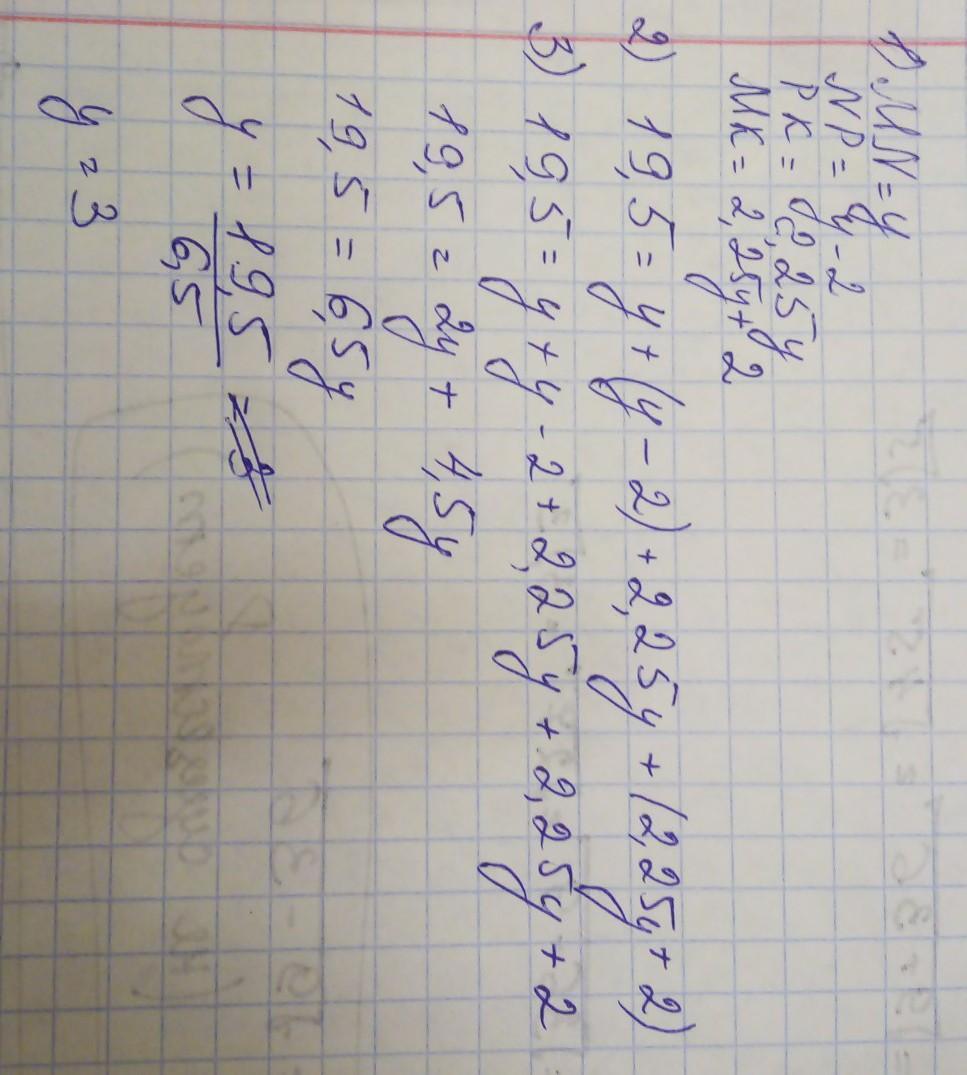 1) MN = y
NP = y - 2
PK = 2,25y
MK = 2,25y + 2
2) 19,5 = y + (y - 2) + 2,25y + (2,25y + 2)
3) 19,5 = y + y - 2 + 2,25y + 2,25y + 2
19,5 = 2y + 4,5y
19,5 = 6,5y
y = 19,5 / 6,5
y = 3